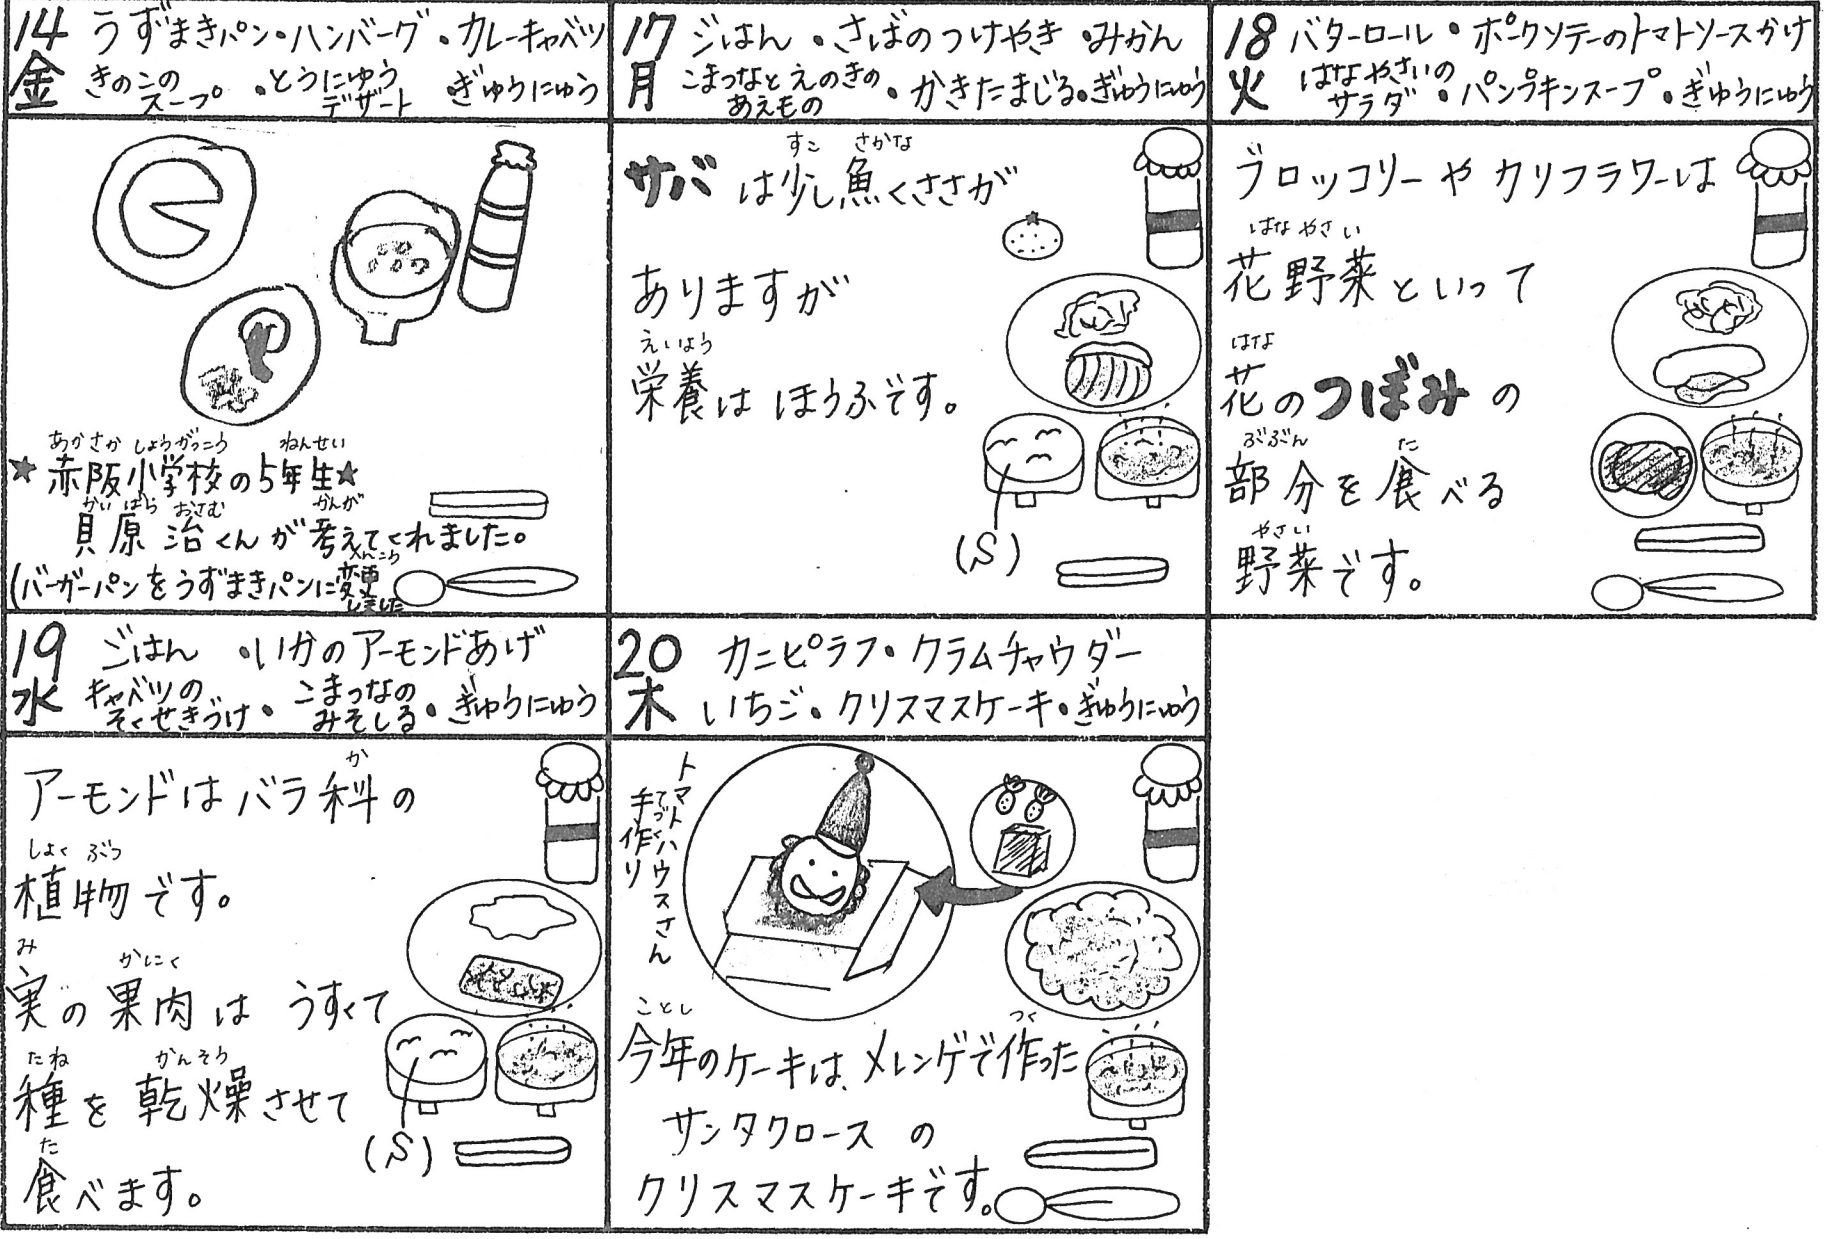 14 うずまきパン・ハンバーグ・カレーキャベツ
金 きのこのスープ・とうにゅうデザート・ぎゅうにゅう
あかさか しょうがっこう ねんせい
★赤阪小学校の5年生★
かいばら おさむ かんが
貝原 治くんが考えてくれました。
へんこう
(バーガーパンをうずまきパンに変更しました
17 ごはん・さばのつけやき・みかん
月 こまつなとえのきのあえもの・かきたまじる・ぎゅうにゅう
すこ さかな
サバは少し魚くささが
ありますが
えいよう
栄養はほうふです。
(S)
18 バターロール・ポークソテーのトマトソースかけ
火 はなやさいのサラダ・パンプキンスープ・ぎゅうにゅう
ブロッコリーやカリフラワーは
はなやさい
花野菜といって
はな
花のつぼみの
ぶぶん た
部分を食べる
やさい
野菜です。
19 ごはん・いかのアーモンドあげ
水 キャベツのそくせきづけ・こまつなのみそしる・ぎゅうにゅう
か
アーモンドはバラ科の
しょくぶつ
植物です。
み かにく
実の果肉はうすくて
たね かんそう
種を乾燥させて
た
食べます。
(S)
20 カニピラフ・クラムチャウダー
木 いちご・クリスマスケーキ・ぎゅうにゅう
トマトハウスさん
てづく
手作り
ことし つく
今年のケーキは、メレンゲで作った
サンタクロースの
クリスマスケーキです。